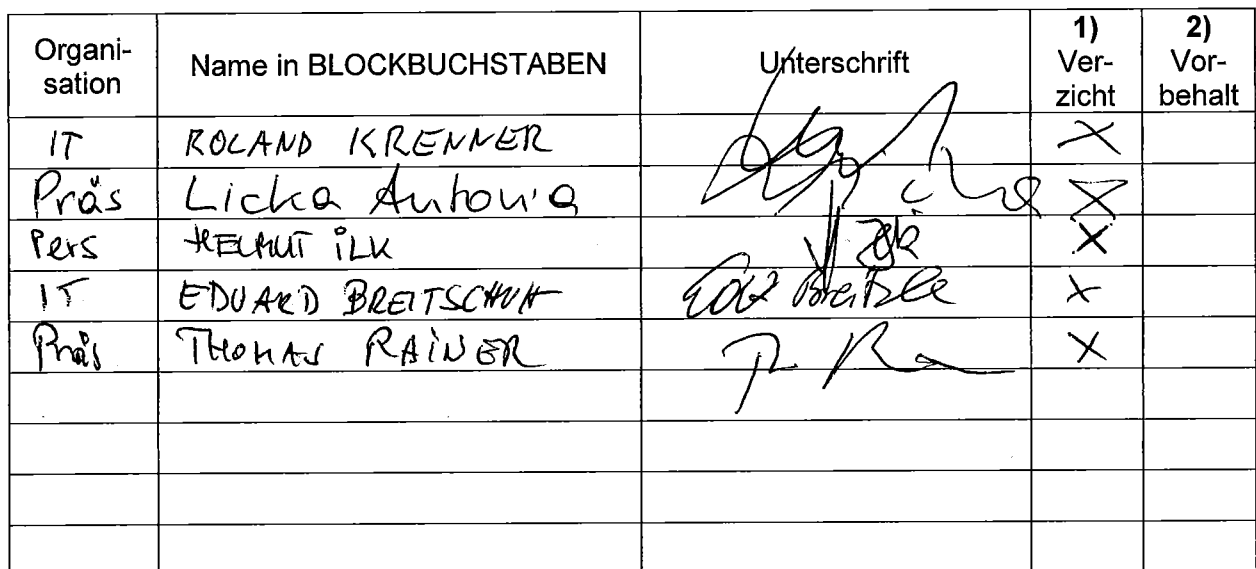 Organi- Name in BLOCKBUCHSTABEN Unterschrift 1) 2)
sation Ver- Vor-
zicht behalt
IT ROLAND KRENNER X
Präs Licka Antonia X
Pers HELMUT iLK X
IT EDUARD BREITSCHUH X
Präs THOMAS RAiNER X